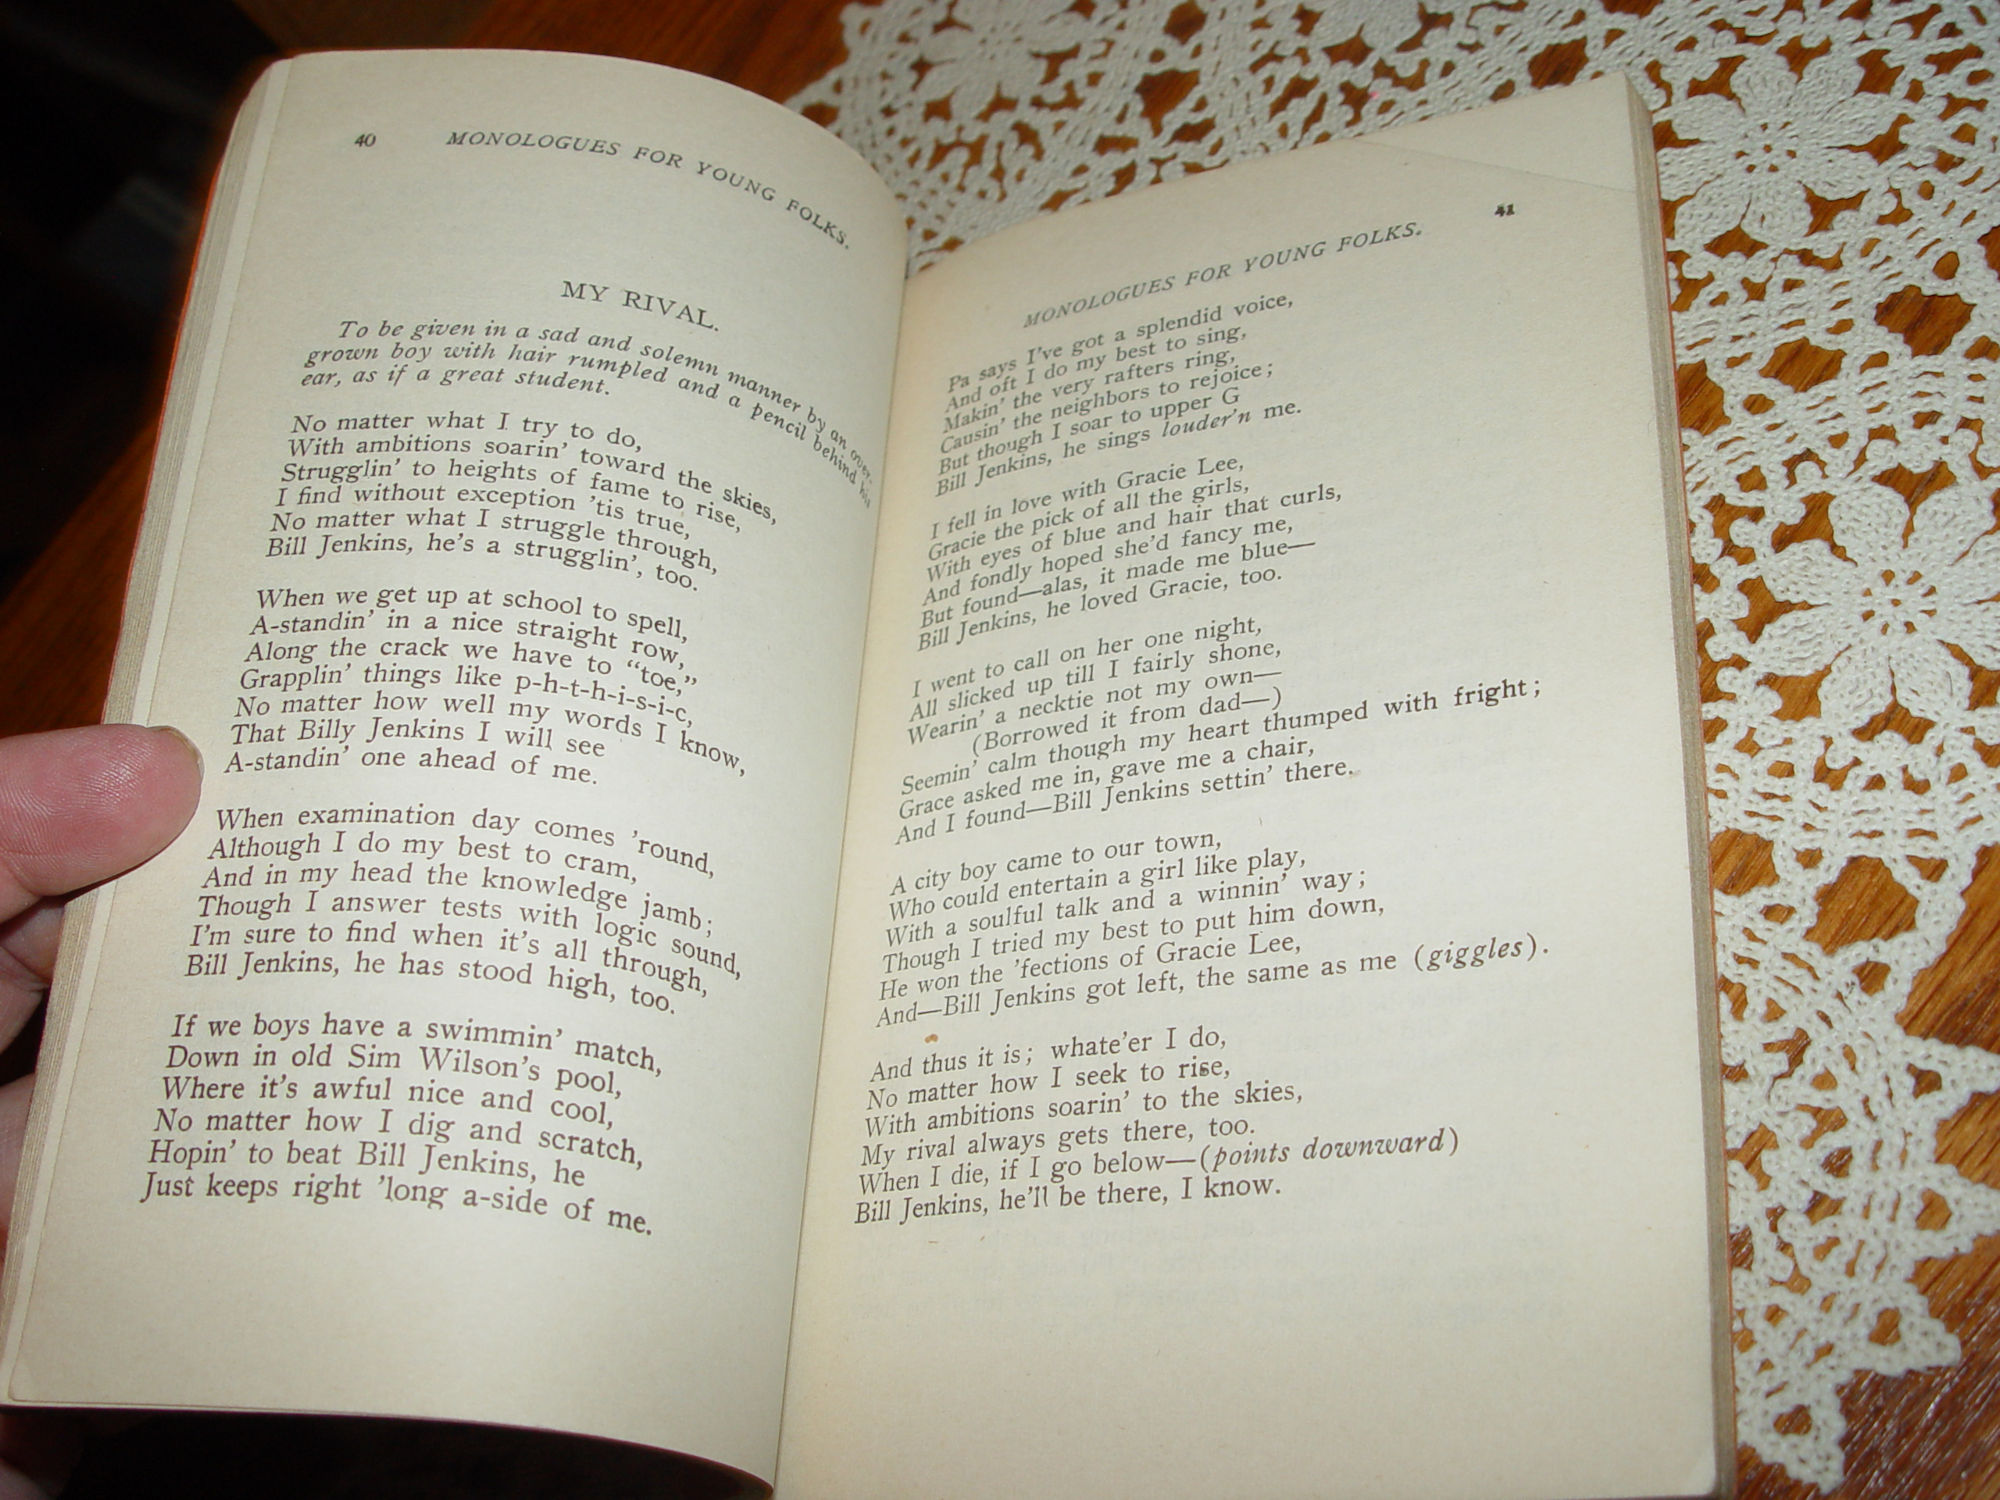 40 MONOLOGUES FOR YOUNG FOLKS.
MY RIVAL.
To be given in a sad and solemn manner by an over-
grown boy with hair rumpled and a pencil behind his
ear, as if a great student.
No matter what I try to do,
With ambitions soarin' toward the skies,
Strugglin' to heights of fame to rise,
I find without exception 'tis true,
No matter what I struggle through,
Bill Jenkins, he's a strugglin', too.
When we get up at school to spell,
A-standin' in a nice straight row,
Along the crack we have to "toe,"
Grapplin' things like p-h-t-h-i-s-i-c,
No matter how well my words I know,
That Billy Jenkins I will see
A-standin' one ahead of me.
When examination day comes 'round,
Although I do my best to cram,
And in my head the knowledge jamb;
Though I answer tests with logic sound,
I'm sure to find when it's all through,
Bill Jenkins, he has stood high, too.
If we boys have a swimmin' match,
Down in old Sim Wilson's pool,
Where it's awful nice and cool,
No matter how I dig and scratch,
Hopin' to beat Bill Jenkins, he
Just keeps right 'long a-side of me.
MONOLOGUES FOR YOUNG FOLKS. 41
Pa says I've got a splendid voice,
And oft I do my best to sing,
Makin' the very rafters ring,
Causin' the neighbors to rejoice;
But though I soar to upper G
Bill Jenkins, he sings louder'n me.
I fell in love with Gracie Lee,
Gracie the pick of all the girls,
With eyes of blue and hair that curls,
And fondly hoped she'd fancy me,
But found—alas, it made me blue—
Bill Jenkins, he loved Gracie, too.
I went to call on her one night,
All slicked up till I fairly shone,
Wearin' a necktie not my own—
(Borrowed it from dad—)
Seemin' calm though my heart thumped with fright;
Grace asked me in, gave me a chair,
And I found—Bill Jenkins settin' there.
A city boy came to our town,
Who could entertain a girl like play,
With a soulful talk and a winnin' way;
Though I tried my best to put him down,
He won the 'fections of Gracie Lee,
And—Bill Jenkins got left, the same as me (giggles).
And thus it is; whate'er I do,
No matter how I seek to rise,
With ambitions soarin' to the skies,
My rival always gets there, too.
When I die, if I go below—(points downward)
Bill Jenkins, he'll be there, I know.